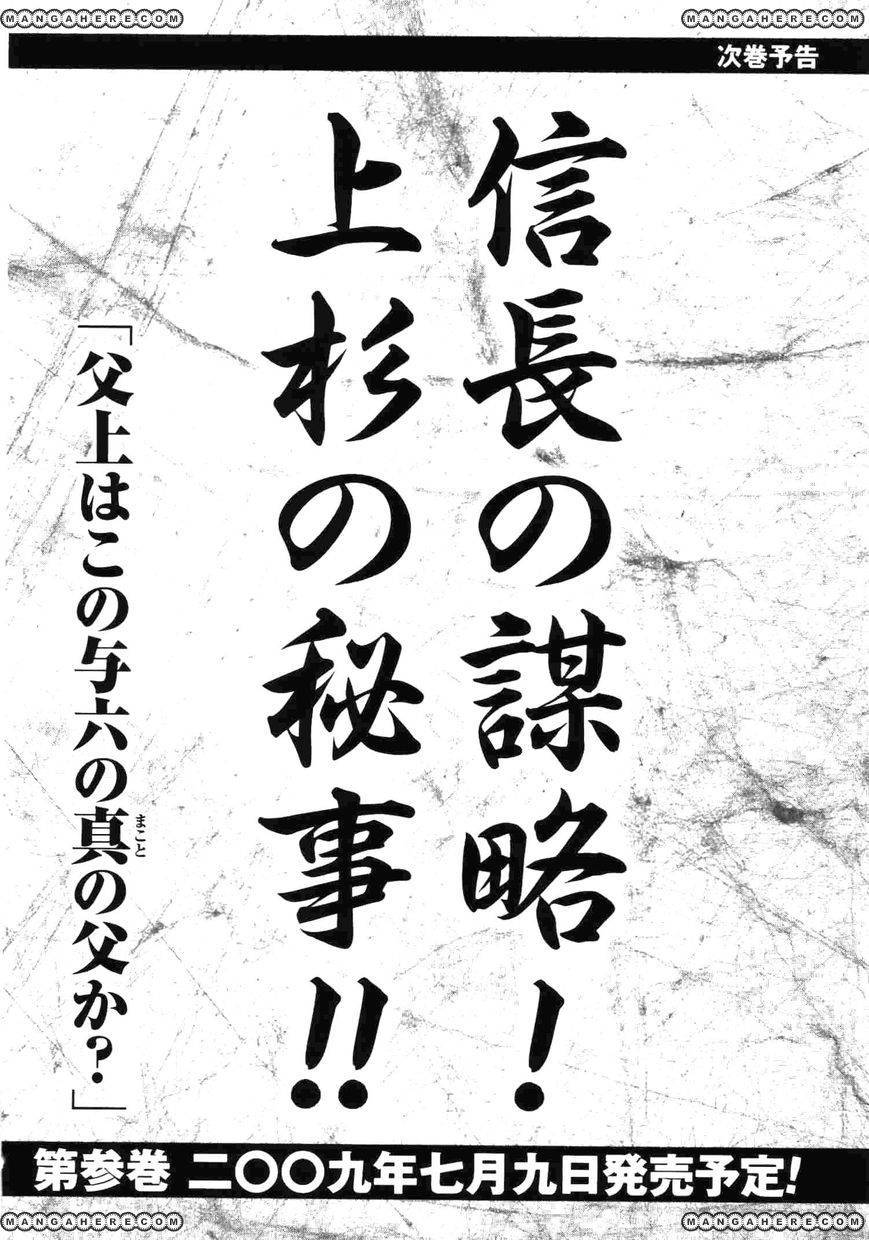 MANGAHERE.COM
MANGAHERE.COM
次巻予告
信長の謀略！
上杉の秘事!!
「父上はこの与六の真の父か？」
まこと
第参巻 二〇〇九年七月九日発売予定！
MANGAHERE.COM
MANGAHERE.COM